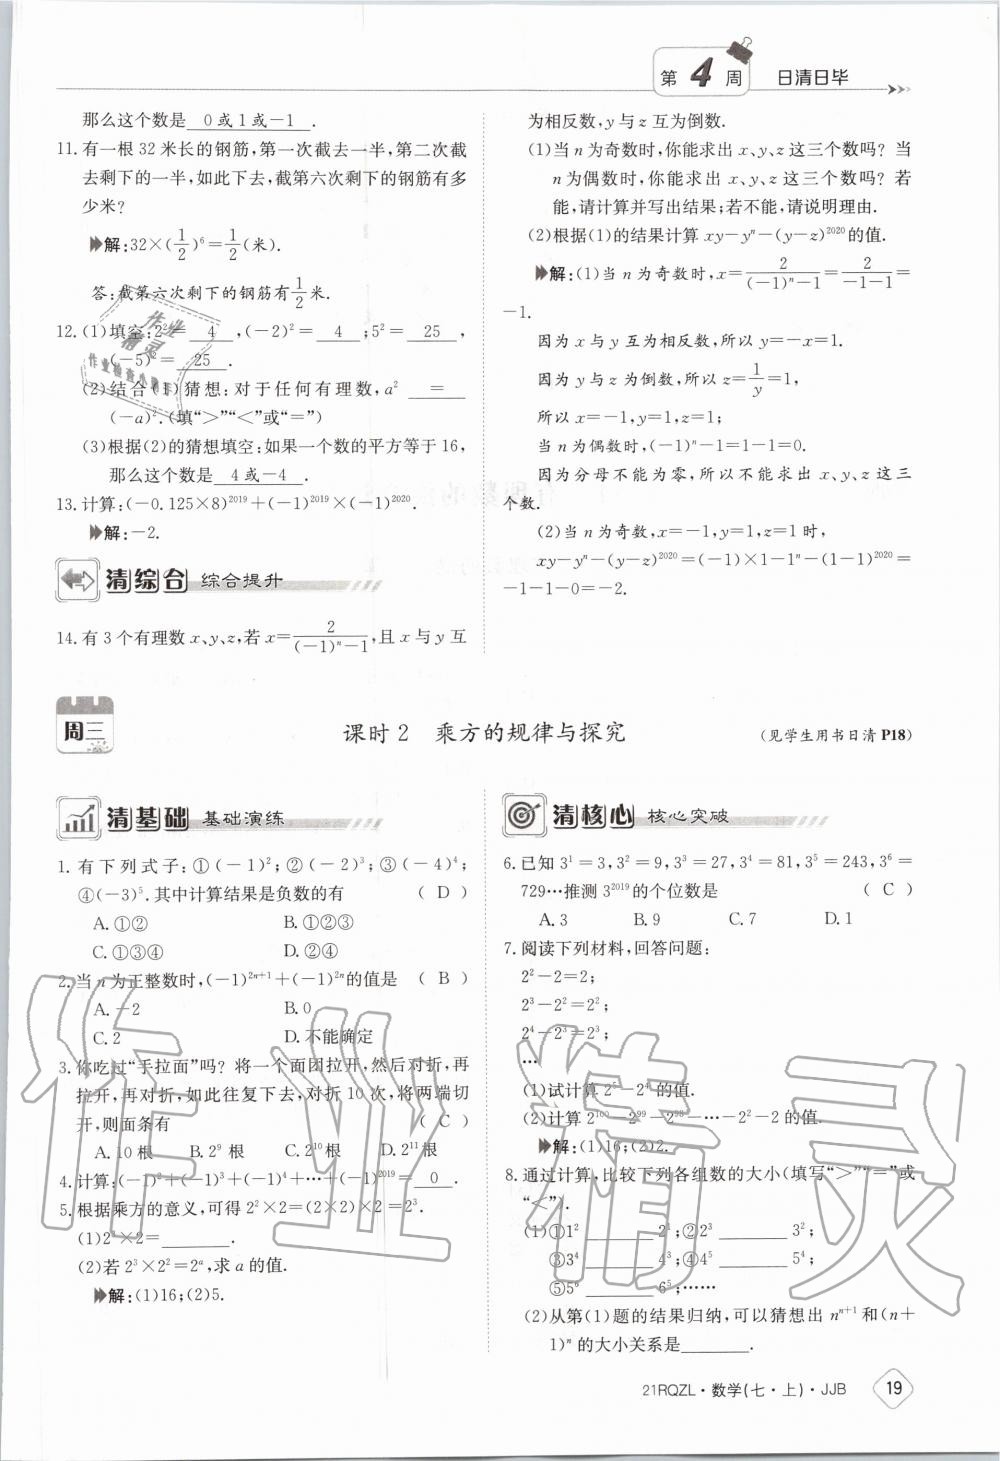 第4周 日清日毕
那么这个数是 0或1或-1 .
11.有一根32米长的钢筋,第一次截去一半,第二次截
去剩下的一半,如此下去,截第六次剩下的钢筋有多
少米?
解:32×(1/2)⁶=1/2(米).
答:截第六次剩下的钢筋有1/2米.
12.(1)填空:2²= 4 ,(-2)²= 4 ;5²= 25 ,
(-5)²= 25 .
(2)结合(1)猜想:对于任何有理数,a² =
(-a)².(填“>”“<”或“=”)
(3)根据(2)的猜想填空:如果一个数的平方等于16,
那么这个数是 4或-4 .
13.计算:(-0.125×8)²⁰¹⁹+(-1)²⁰¹⁹×(-1)²⁰²⁰.
解:-2.
清综合 综合提升
14.有3个有理数x、y、z,若x=2/((-1)ⁿ-1),且x与y互
为相反数,y与z互为倒数.
(1)当n为奇数时,你能求出x、y、z这三个数吗?当
n为偶数时,你能求出x、y、z这三个数吗?若
能,请计算并写出结果;若不能,请说明理由.
(2)根据(1)的结果计算xy-yⁿ-(y-z)²⁰²⁰的值.
解:(1)当n为奇数时,x=2/((-1)ⁿ-1)=2/(-1-1)=
-1.
因为x与y互为相反数,所以y=-x=1.
因为y与z为倒数,所以z=1/y=1,
所以x=-1,y=1,z=1;
当n为偶数时,(-1)ⁿ-1=1-1=0.
因为分母不能为零,所以不能求出x、y、z这三
个数.
(2)当n为奇数,x=-1,y=1,z=1时,
xy-yⁿ-(y-z)²⁰²⁰=(-1)×1-1ⁿ-(1-1)²⁰²⁰=
-1-1-0=-2.
周三
课时2 乘方的规律与探究 (见学生用书日清P18)
清基础 基础演练
1.有下列式子:①(-1)²;②(-2)³;③(-4)⁴;
④(-3)⁵.其中计算结果是负数的有 ( D )
A.①② B.①②③
C.①③④ D.②④
2.当n为正整数时,(-1)²ⁿ⁺¹+(-1)²ⁿ的值是 ( B )
A.-2 B.0
C.2 D.不能确定
3.你吃过“手拉面”吗?将一个面团拉开,然后对折,再
拉开,再对折,如此往复下去,对折10次,将两端切
开,则面条有 ( C )
A.10根 B.2⁹根 C.2¹⁰根 D.2¹¹根
4.计算:(-1)²+(-1)³+(-1)⁴+…+(-1)²⁰¹⁹= 0 .
5.根据乘方的意义,可得2²×2=(2×2)×2=2³.
(1)2³×2=______.
(2)若2³×2²=2ᵃ,求a的值.
解:(1)16;(2)5.
清核心 核心突破
6.已知3¹=3,3²=9,3³=27,3⁴=81,3⁵=243,3⁶=
729…推测3²⁰¹⁹的个位数是 ( C )
A.3 B.9 C.7 D.1
7.阅读下列材料,回答问题:
2²-2=2;
2³-2²=2²;
2⁴-2³=2³;
…
(1)试计算2⁵-2⁴的值.
(2)计算2¹⁰⁰-2⁹⁹-2⁹⁸-…-2²-2的值.
解:(1)16;(2)2.
8.通过计算,比较下列各组数的大小(填写“>”“=”或
“<”).
(1)①1² ______ 2¹;②2³ ______ 3²;
③3⁴ ______ 4³;④4⁵ ______ 5⁴;
⑤5⁶ ______ 6⁵;……
(2)从第(1)题的结果归纳,可以猜想出nⁿ⁺¹和(n+
1)ⁿ的大小关系是______.
21RQZL·数学(七·上)·JJB 19
作业精灵
作业
精灵
作业检查小助手